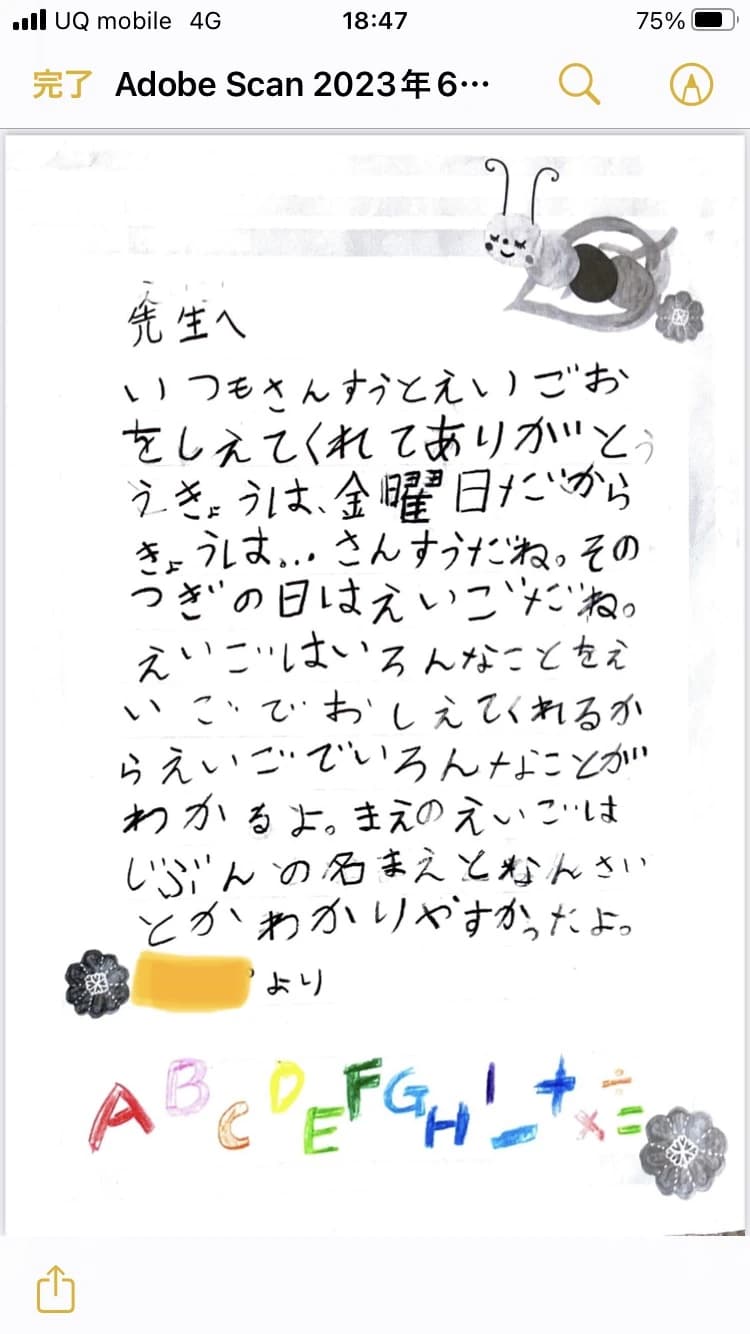 UQ mobile 4G 18:47 75%
完了 Adobe Scan 2023年6…
先生へ
いつもさんすうとえいごお
をしえてくれてありがとう
えきょうは、金曜日だから
きょうは…さんすうだね。その
つぎの日はえいごだね。
えいごはいろんなことをえ
いごでおしえてくれるか
らえいごでいろんなことが
わかるよ。まえのえいごは
じぶんの名まえとなんさい
とかわかりやすかったよ。
より
A B C D E F G H I - + × ÷ =